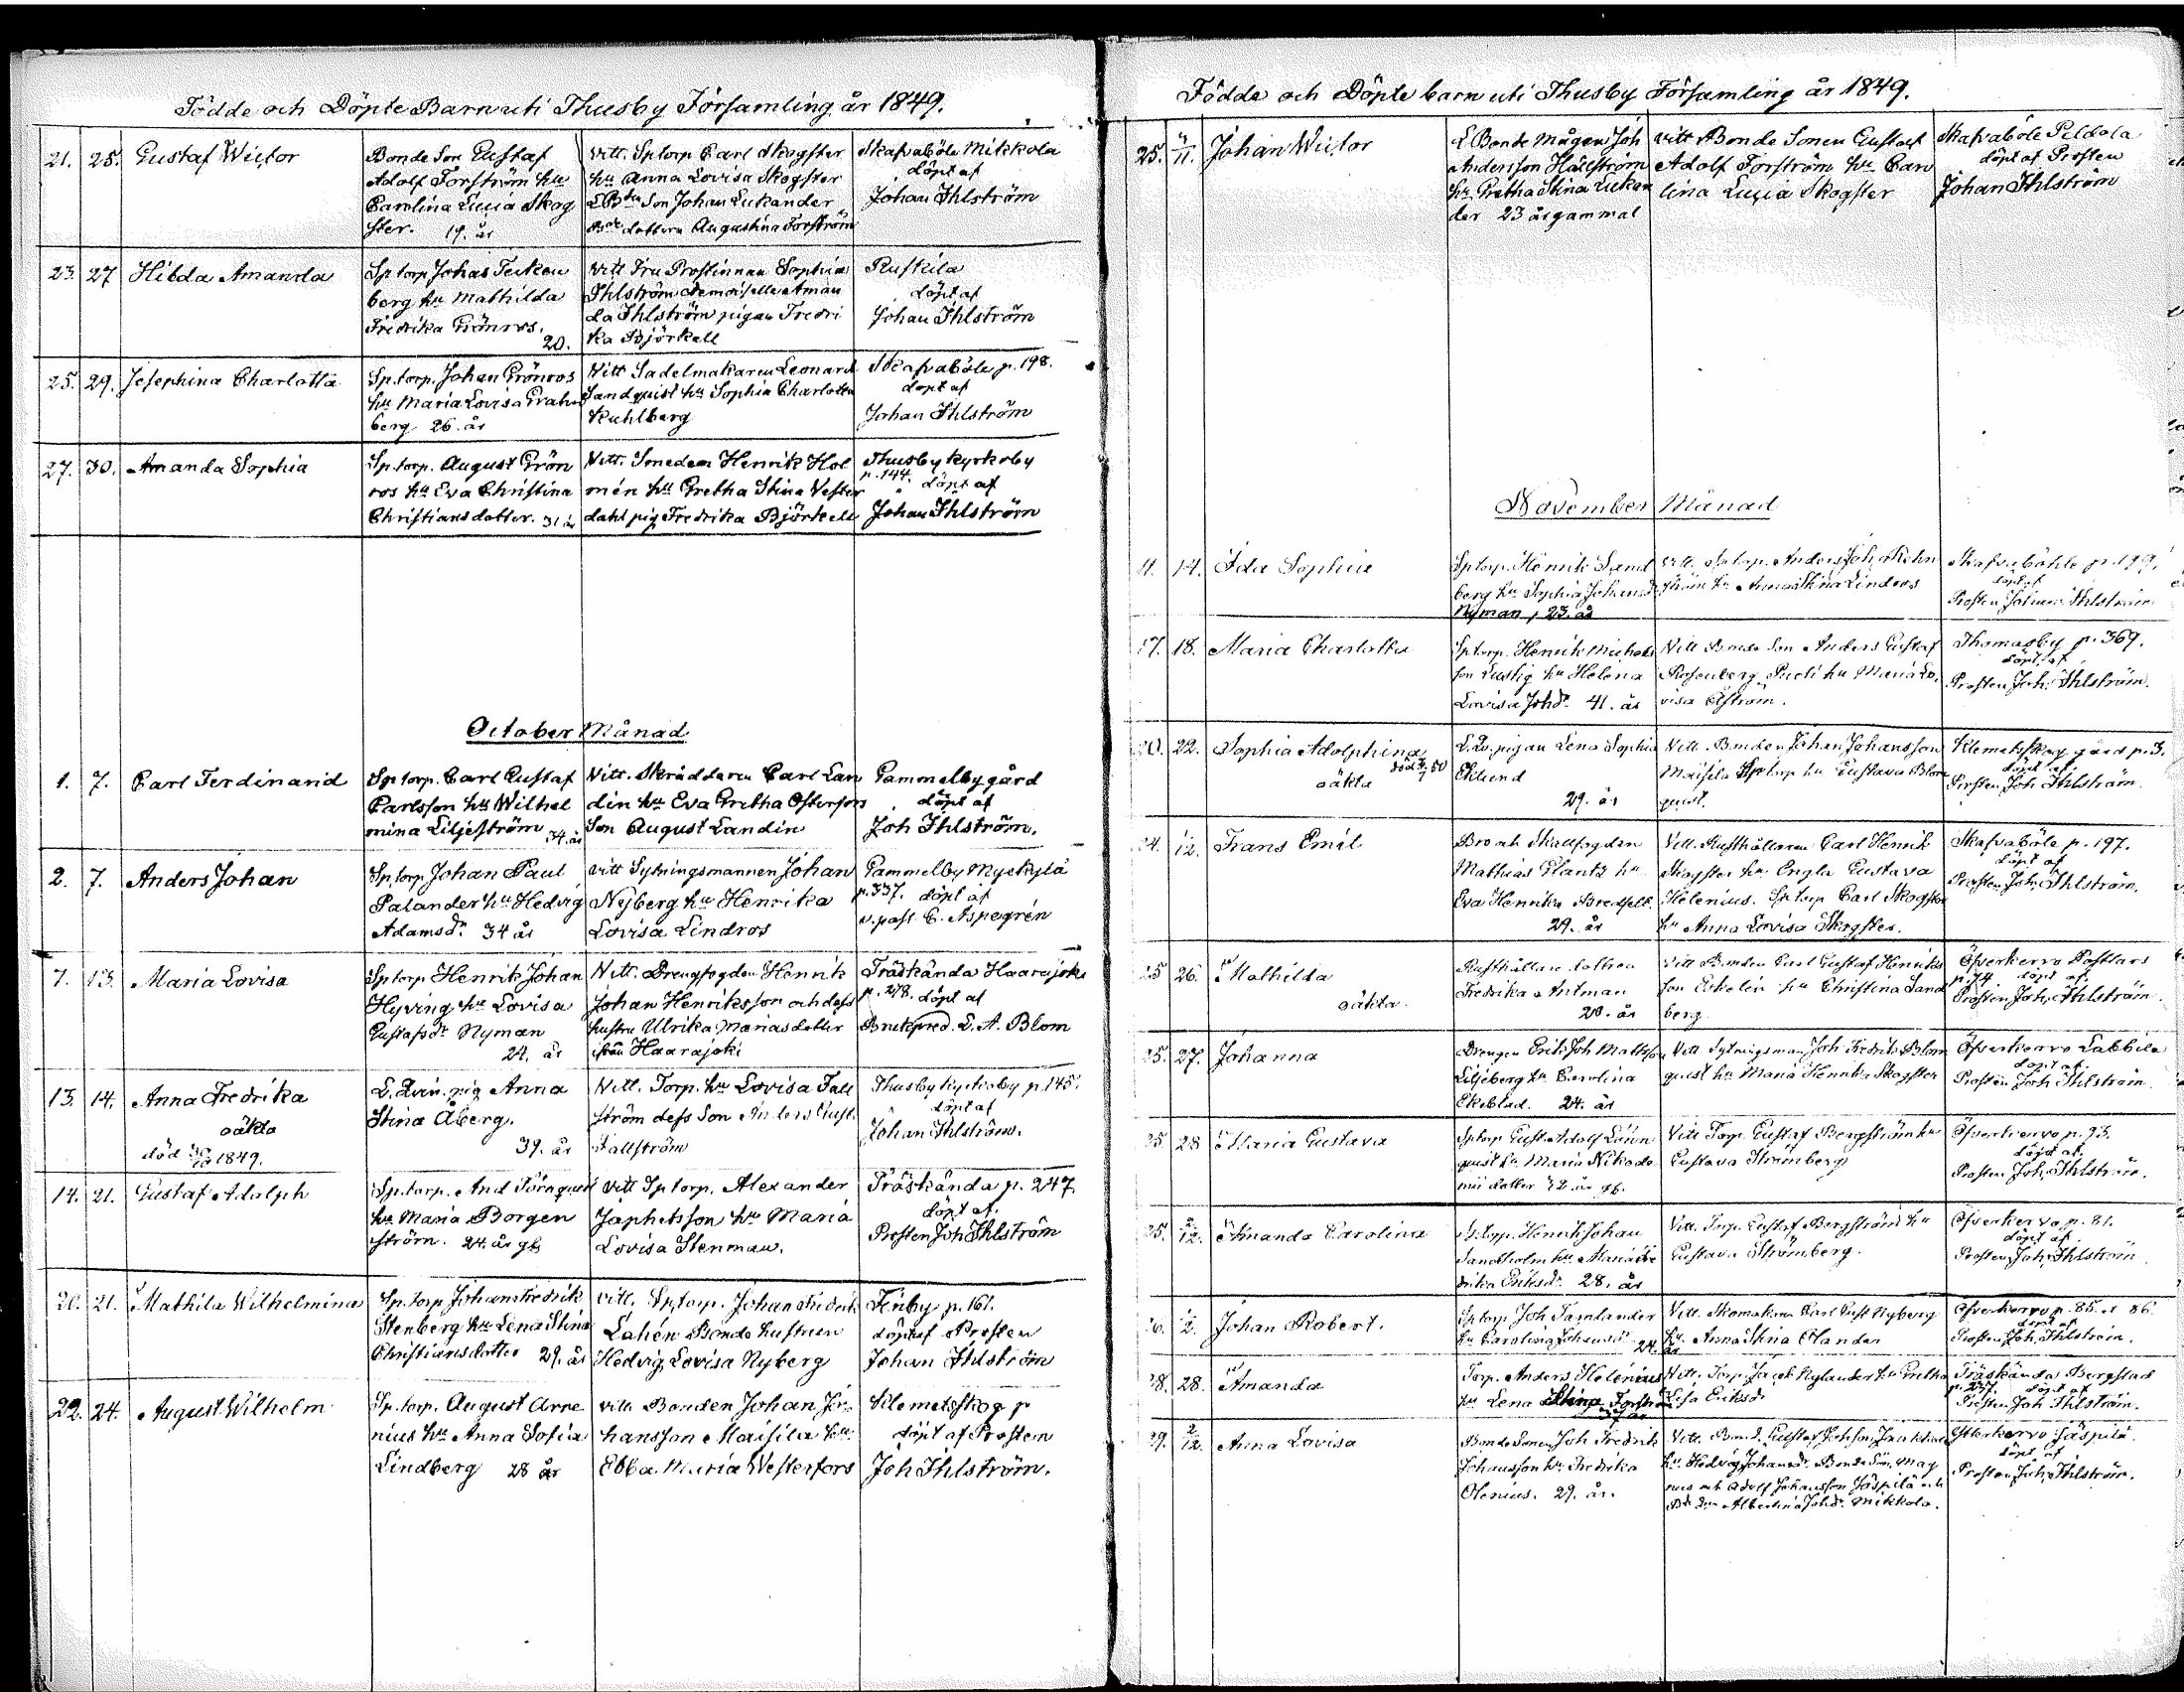 Födde och Döpte Barn uti Thusby Församling år 1849.
21. 25. Gustaf Wictor
Bonde Son Gustaf
Adolf Forström hu
Carolina Lucia Skog
ster. 19. år
Vitt. Sp torp Carl Skogster
hu Anna Lovisa Skogster
Son Johan Lukander
dottern Augustina Forström
Skafvaböle Mikkola
döpt af
Johan Ihlström
23. 27 Hilda Amanda
Sp torp Johas
berg hu Mathilda
Fredrika Grönros.
20.
Vitt Fru Prostinnan Sophia
Ihlström demoiselle Aman
da Ihlström pigan Fredri
ka Björkell
Ruskila
döpt af
Johan Ihlström
25. 29. Josephina Charlotta
Sp. torp. Johan Grönros
hu Maria Lovisa Grahn
berg 26. år
Vitt Sadelmakaren Leonard
Sandquist hu Sophia Charlotta
Kuhlberg
Skafvaböle p. 198.
döpt af
Johan Ihlström
27. 30. Amanda Sophia
Sp. torp. August Grön
ros hu Eva Christina
Christiansdotter. 31 år
Vitt. Smeden Henrik Hol
mén hu Gretha Stina Vester
dahl pig Fredrika Björkell
Thusby kyrkoby
p. 144. döpt af
Johan Ihlström
October Månad
1. 7. Carl Ferdinand
Sp torp. Carl Gustaf
Carlsson hu Wilhel
mina Liljeström 34. år
Vitt. Skräddaren Carl Lan
din hu Eva Gretha Ofterfors
Son August Landin
Gammelby gård
döpt af
Joh Ihlström.
2. 7. Anders Johan
Sp. torp Johan Paul
Palander hu Hedvig
Adamsdr. 34 år
Vitt Sytningsmannen Johan
Nyberg hu Henrika
Lovisa Lindros
Gammelby Myckylä
p. 337. döpt af
v. past. C. Aspegrén
7. 13. Maria Lovisa
Sp torp Henrik Johan
Hyving hu Lovisa
Gustafsdr Nyman
24. år
Vitt. Drengfogden Henrik
Johan Henriksson och dess
hustru Ulrika Mariasdotter
ifrån Haarajoki
Träskända Haarajoki
p. 278. döpt af
Brukspred. L. A. Blom
13. 14. Anna Fredrika
oäkta
död 30/10 1849.
L. Qvin. pig Anna
Stina Åberg.
39. år
Vitt. Torp. hu Lovisa Fall
ström dess Son Anders Gust.
Fallström
Thusby kyrkoby p. 145.
döpt af
Johan Ihlström.
14. 21. Gustaf Adolph
Sp. torp. And Törnquist
hu Maria Borgen
ström. 24. år gl.
Vitt Sp torp. Alexander
Japhetsson hu Maria
Lovisa Stenman.
Träskända p. 247.
döpt af.
Prosten Joh Ihlström
20. 21. Mathila Wilhelmina
Sp. torp Johan Fredrik
Stenberg hu Lena Stina
Christiansdotter 29. år
Vitt. Sp torp. Johan Fredrik
Lahén Bonde hustrun
Hedvig Lovisa Nyberg
Finby p. 161.
döpt af Prosten
Johan Ihlström
22. 24. August Wilhelm
Sp. torp. August Arre
nius hu Anna Sofia
Lindberg 28 år
Vitt Bonden Johan Jo
hansson Maisila hu
Ebba Maria Westerfors
Klemetskog p
döpt af Prosten
Joh Ihlström.
Födde och Döpte barn uti Thusby Församling år 1849.
25. 4/11. Johan Wictor
Bonde Mågen Joh
Andersson Hällström
hu Gretha Stina Lukan
der 23 år gammal
Vitt Bonde Sonen Gustaf
Adolf Forström hu Caro
lina Lucia Skogster
Skafvaböle Peldola
döpt af Prosten
Johan Ihlström
November Månad
11. 14. Ida Sophia
Sp torp. Henrik Sand
berg hu Sophia Johansdr
Nyman, 23. år
Vitt. Sp torp. Anders Joh
ström hu Anna Stina Lindros
Skafvaböhle p. 199.
döpt af
Prosten Johan Ihlström
17. 18. Maria Charlotta
Sp torp. Henrik Michels
son Lustig hu Helena
Lovisa Johdr 41. år
Vitt Bonde Son Anders Gustaf
Rosenberg hu Maria Lo
visa Elfström.
Thomasby p. 369.
döpt af
Prosten Joh. Ihlström.
20. 22. Sophia Adolphina
oäkta
L. Qv. pigan Lena Sophia
Eklund
29. år
Vitt. Bonden Johan Johansson
Maisila Sp torp hu Gustava Blom
quist.
Klemetskog gård p. 3.
döpt af
Prosten Joh Ihlström.
24. 1/12. Frans Emil
Bro och Skallfogden
Mathias Glantz hu
Eva Henrika
29. år
Vitt. Rusthållaren Carl Henrik
Skogster hu Engla Gustava
Helenius. Sp torp Carl Skogster
hu Anna Lovisa Skogster.
Skafvaböle p. 197.
döpt af
Prosten Joh. Ihlström.
25 26. Mathilda
oäkta.
Rusthållare dottren
Fredrika Antman
20. år
Vitt Bonden Carl Gustaf Henriks
son hu Christina Sand
berg.
Öfverkervo Postlars
p. 74 döpt af
Prosten Joh. Ihlström.
25. 27. Johanna
Drengen Erik Joh Mattsson
Liljeberg hu Carolina
Ekeblad. 24. år
Vitt Sytningsman Joh Fredrik Blom
quist hu Maria Henrika Skogster
Öfverkervo Labbila
döpt af
Prosten Joh Ihlström
25 28 Maria Gustava
Sp torp Gust. Adolf Lönn
quist hu Maria Nikode
mi dotter 32. år gl.
Vitt Torp Gustaf Bergström hu
Gustava Strömberg
Öfverkervo p. 93.
döpt af.
Prosten Joh. Ihlström.
25. 2/12. Amanda Carolina
Sp. torp. Henrik Johan
Sandholm hu Maria Fre
drika Eriksdr 28. år
Vitt. Torp. Gustaf Bergström hu
Gustava Strömberg.
Öfverkervo p. 81.
döpt af.
Prosten Joh. Ihlström
26. 1/2. Johan Robert.
Sp torp Joh Tamlander
hu Carolina Johansdr 24. år
Vitt. Skomakaren Carl Gust Nyberg
hu. Anna Stina Olander
Öfverkervo p. 85. o 86.
döpt af
Prosten Joh. Ihlström.
28. 28. Amanda
Torp. Anders Helénius
hu Lena Stina Forström
37 år
Vitt. Torp. Jacob Nylander hu Gretha
Lisa Eriksdr
Träskända Bergstad
döpt af
Prosten Joh Ihlström.
29. 2/12. Anna Lovisa
Bonde Sonen Joh Fredrik
Johansson hu Fredrika
Olenius. 29. år.
Vitt. Bond. Gustaf
hu Hedvig Johansdr. Bonde Sön. Mag
nus och Adolf Johansson Jäspilä och
Albertina Johdr. Mikkola.
Ytterkervo Jäspilä
döpt af
Prosten Joh. Ihlström.